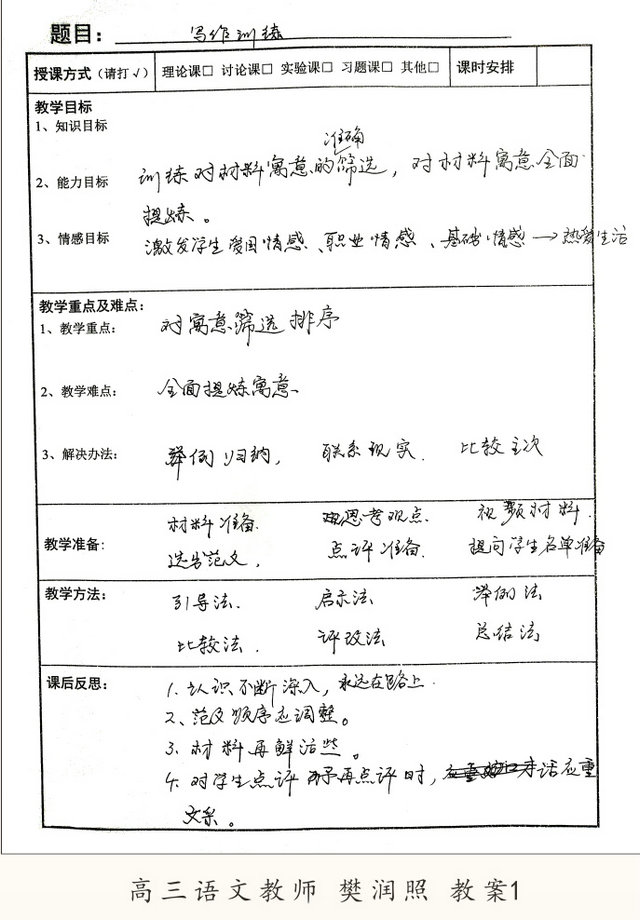 题目： 写作训练
授课方式（请打√） 理论课□ 讨论课□ 实验课□ 习题课□ 其他□ 课时安排
教学目标
1、知识目标
准确
2、能力目标 训练对材料寓意的筛选，对材料寓意全面
提炼。
3、情感目标 激发学生爱国情感、职业情感、基础情感→热爱生活
教学重点及难点：
1、教学重点： 对寓意筛选排序
2、教学难点： 全面提炼寓意、
3、解决办法： 举例归纳， 联系现实． 比较主次
材料准备． 思考观点． 视频材料．
教学准备：
选告范文， 点评准备． 提问学生名单准备
教学方法：
引导法． 启示法 举例法
比较法． 评改法 总结法
课后反思： 1．认识不断深入，永远在路上．
2、范文顺序应调整。
3．材料再鲜活些。
4．对学生点评 再点评时， 话应重
高三语文教师 樊润照 教案1